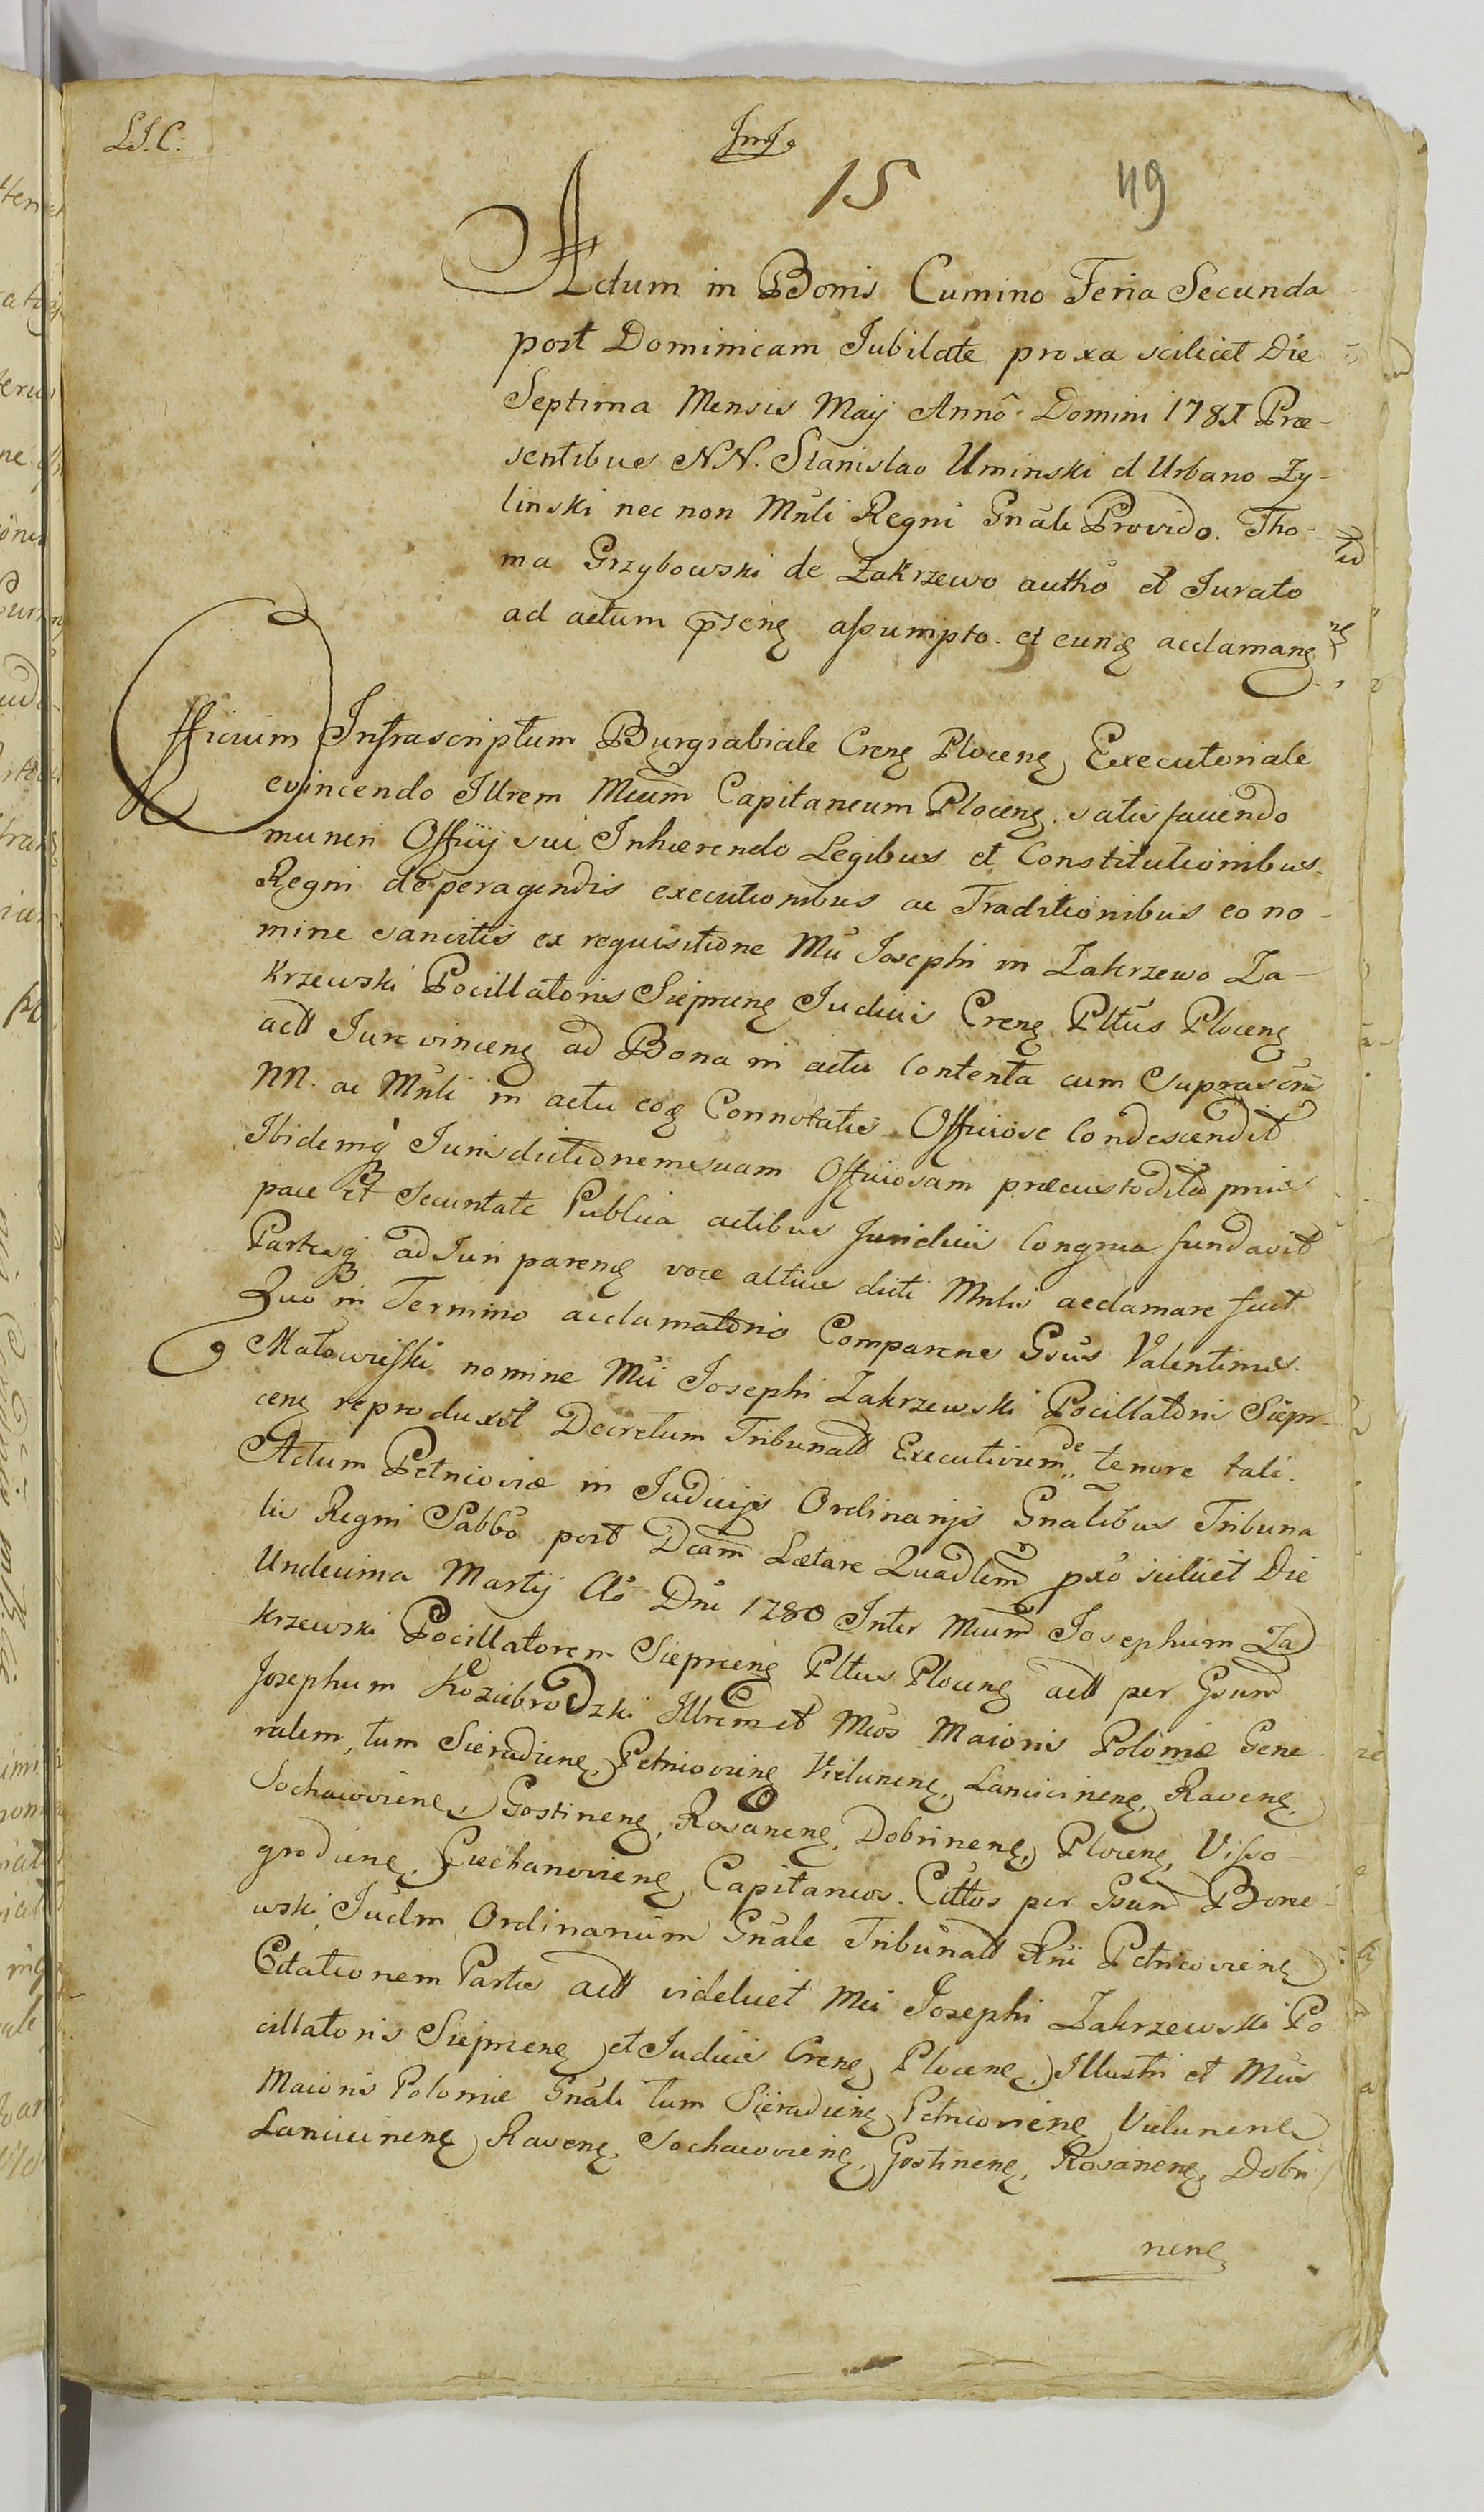 LJ.C:
15
49
Actum in Bonis Cumino Feria Secunda
post Dominicam Jubilate proxa scilicet Die
Septima Mensis Maij Annô Domini 1781 Præ-
sentibus NN. Stanislao Uminski et Urbano Zy-
linski nec non Mnli Regni Gnãli Provido. Tho-
ma Grzybowski de Zakrzewo authõ et Jurato
ad actum pseng assumpto. et eung acclamang
Officium Infrascriptum Burgrabiale Creng Ploceng Executoriale
evincendo Illrem Mcum Capitaneum Ploceng. satis faciendo
muneri Officij sui Inhærendo Legibus et Constitutionibus.
Regni de peragendis executionibus ac Traditionibus eo no-
mine sancitis ex requisitione Mci Josephi in Zakrzewo Za-
krzewski Pocillatoris Sieprceng Judicis Creng Pltus Ploceng
actt Jure vinceng ad Bona in actu Contenta cum Suprascris
NN. ac Mnli in actu eog Connotatis Officiose Condescendit
Ibidemq Jurisdictionem suam Officiosam præcustodita prius
pace et Securitate Publica actibus Juridicis Congrua fundavit
Partesq ad Juri pareng voce altius dicti Mnlis acclamare fecit
Quo in Termino acclamatorio Comparens Gsus Valentinus.
Matowiesski nomine Mci Josephi Zakrzewski Pocillatoris Siepr-
ceng reproduxit Decretum Tribunatt Executivum de tenore tali.
Actum Petricoviæ in Judicijs Ordinarijs Gnalibus Tribuna
lis Regni Sabbo post Dcam Lætare Quadlem pxo scilicet Die
Undecima Martij Aõ Dni 1780 Inter Mcum Josephum Za
krzewski Pocillatorem Sieprceng Pltus Ploceng actt per Gsum
Josephum Koziebrodzki Illrem et Mcos Maioris Poloniæ Gene
ralem, tum Sieradieng, Petricovieng Vieluneng, Lancicineng, Raveng,
Sochacovieng, Gostineng, Rosaneng, Dobrineng, Ploceng, Visso-
grodieng, Ciechanovieng Capitaneos. Cittos per Gsum Bone-
wski, Judm Ordinarium Gnale Tribunatt Rni Petricovieng
Citationem Partis actt videlicet Mci Josephi Zakrzewski Po
cillatoris Sieprceng et Judicis Creng Ploceng, Illustri et Mcis
Maioris Poloniæ Gnali tum Sieradieng Petricovieng Vieluneng
Lancicineng Raveng, Sochacovieng, Gostineng, Rosaneng, Dobri
neng